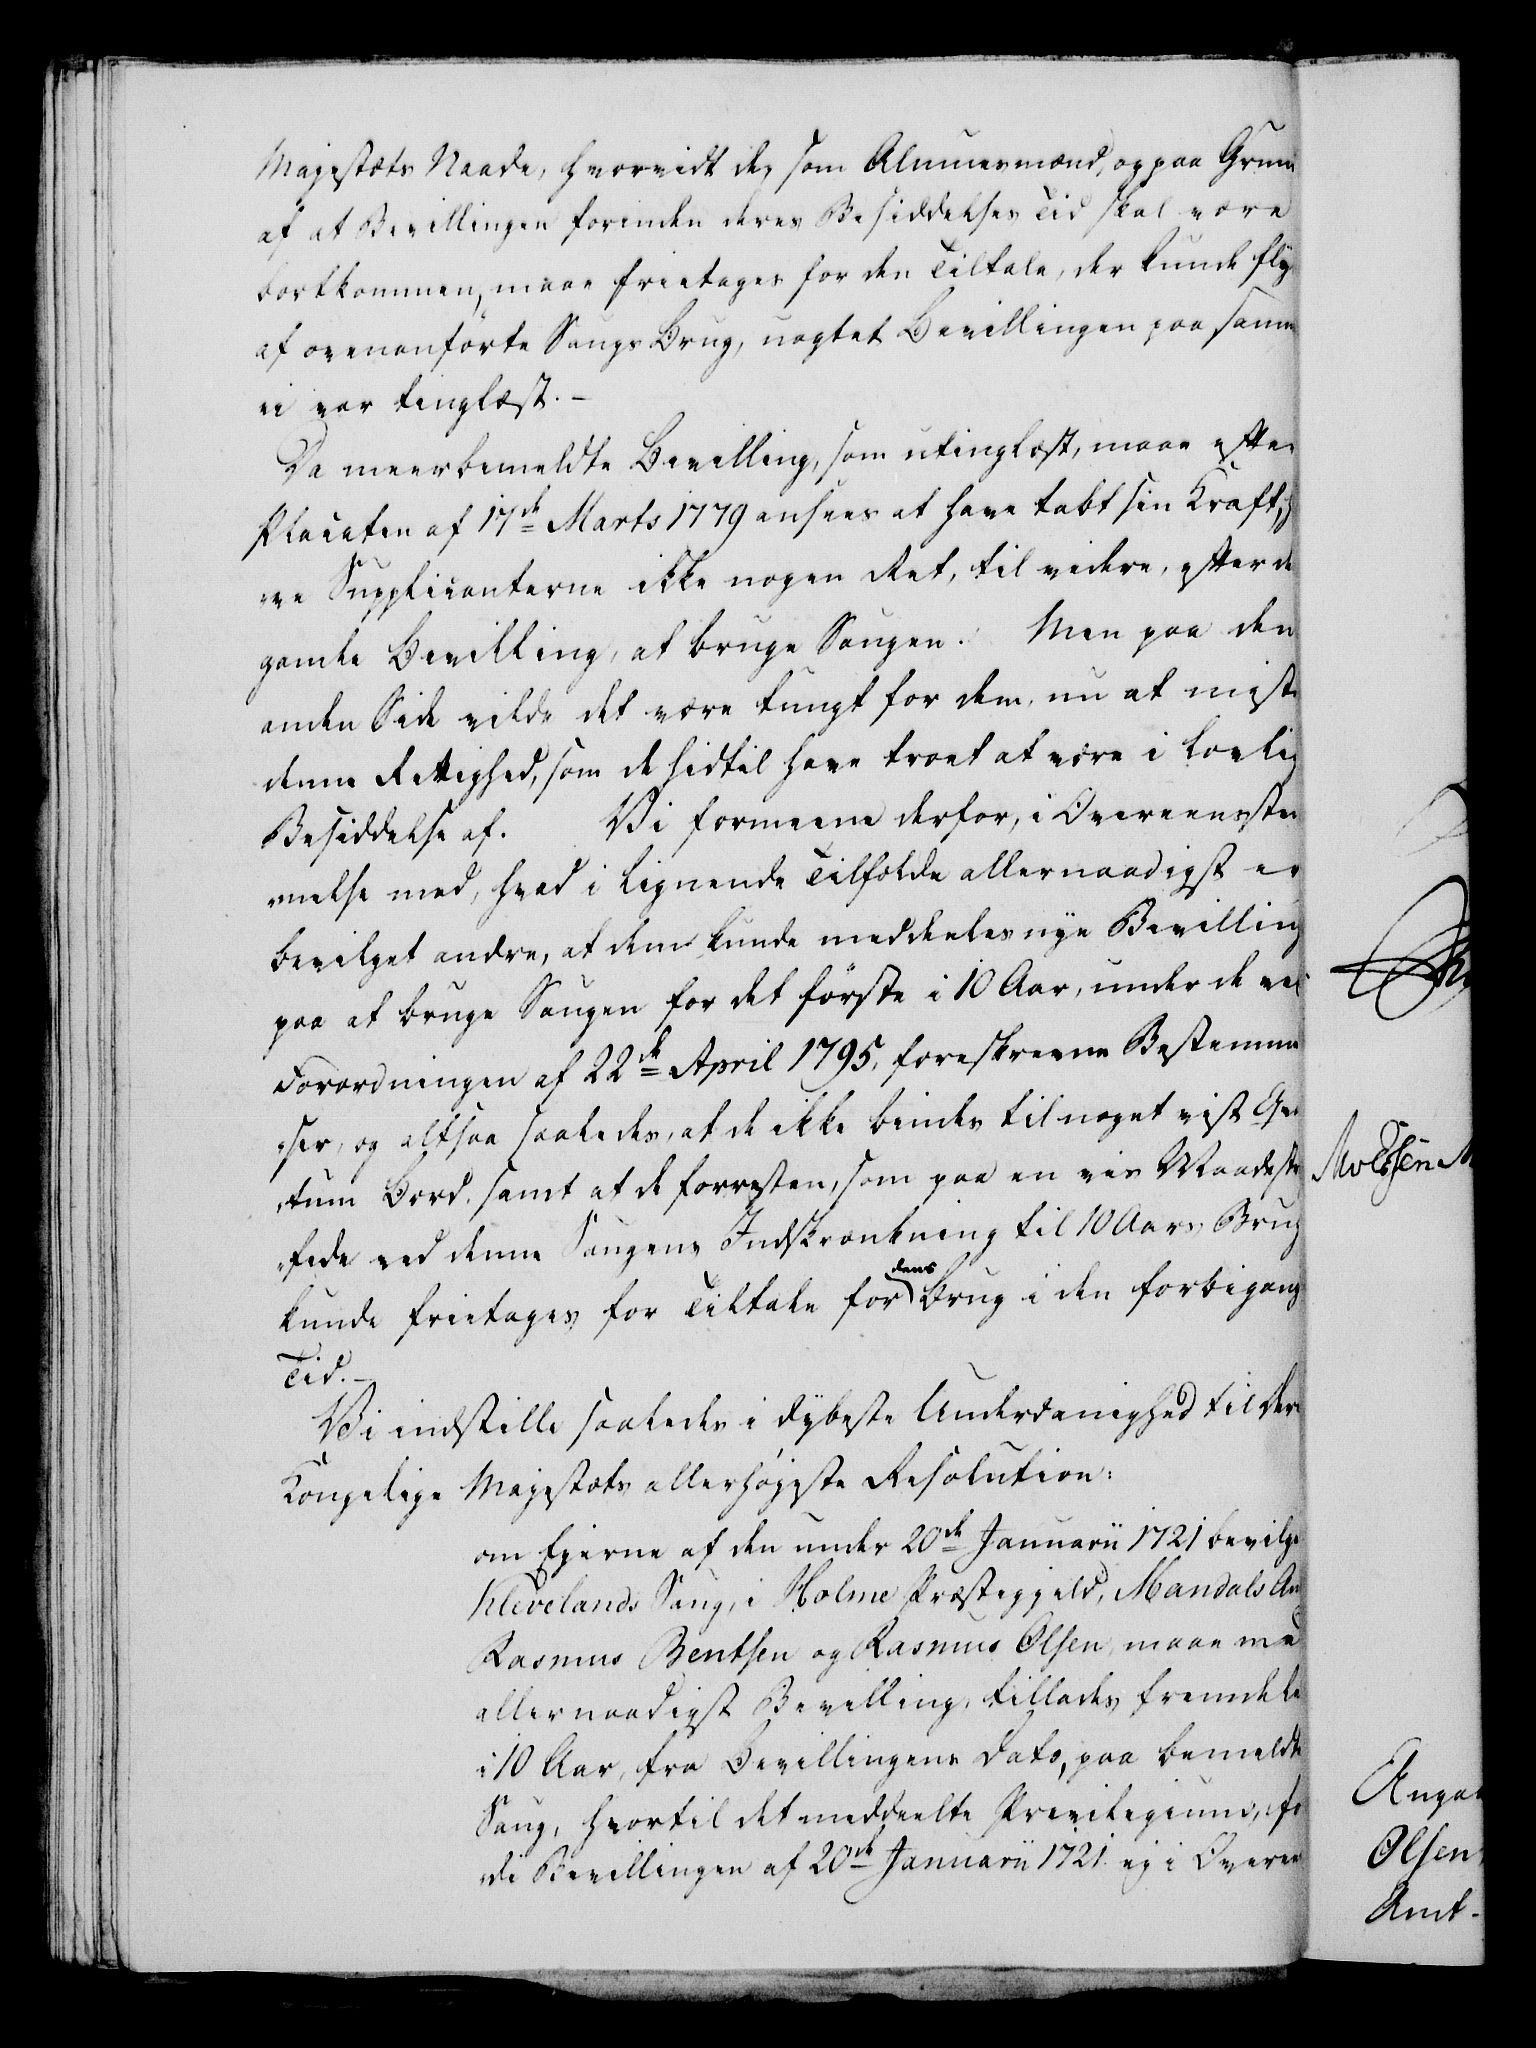 Majestæts Naade, hvorvidt de, som Almuesmænd, og paa Grun
af at Bevillingen forinden deres Besiddelses Tid skal være
bortkommen, maae frietages for den Tiltale, der kunde flyde
af ovenanførte Saugs Brug, uagtet Bevillingen paa samme
ei var tinglæst. –
Da meerbemeldte Bevilling, som utinglæst, maae efter
Placaten af 17de Marts 1779 ansees at have tabt sin Kraft, h
ve Supplicanterne ikke nogen Ret, til videre, efter de
gamle Bevilling, at bruge Saugen. Men paa den
anden Side vilde det være tungt for dem, nu at miste
denne Rettighed, som de hidtil have troet at være i lovlig
Besiddelse af. Vi formeene derfor, i Overeensstem
melse med, hvad i lignende Tilfælde allernaadigst er
bevilget andre, at dem kunde meddeeles nye Bevilling
paa at bruge Saugen for det første i 10 Aar, under de ved
Forordningen af 22de April 1795, foreskrevne Bestemmel
ser, og altsaa saaledes, at de ikke bindes til noget vist Qvan
tum Bord, samt at de forresten, som paa en vis Maade straf
fede ved denne Saugens Indskrænkning til 10 Aars Brug
kunde frietages for Tiltale for dens Brug i den forbigangne
Tid. –
Vi indstille saaledes i dybeste Underdanighed til Deres
Kongelige Majestæts allerhøjeste Resolution:
om Ejerne af den under 20de Januarii 1721 bevilge
Klevelands Saug, i Holme Præstegjeld, Mandals Am
Rasmus Bentsen og Rasmus Olsen, maae ved
allernaadigst Bevilling, tillades fremdeles
i 10 Aar, fra Bevillingens Dato, paa bemeldte
Saug, hvortil det meddeelte Privilegium, for
di Bevillingen af 20de Januarii 1721 ej i Overeen
Moessen
Angaa
Olsen
Amt.